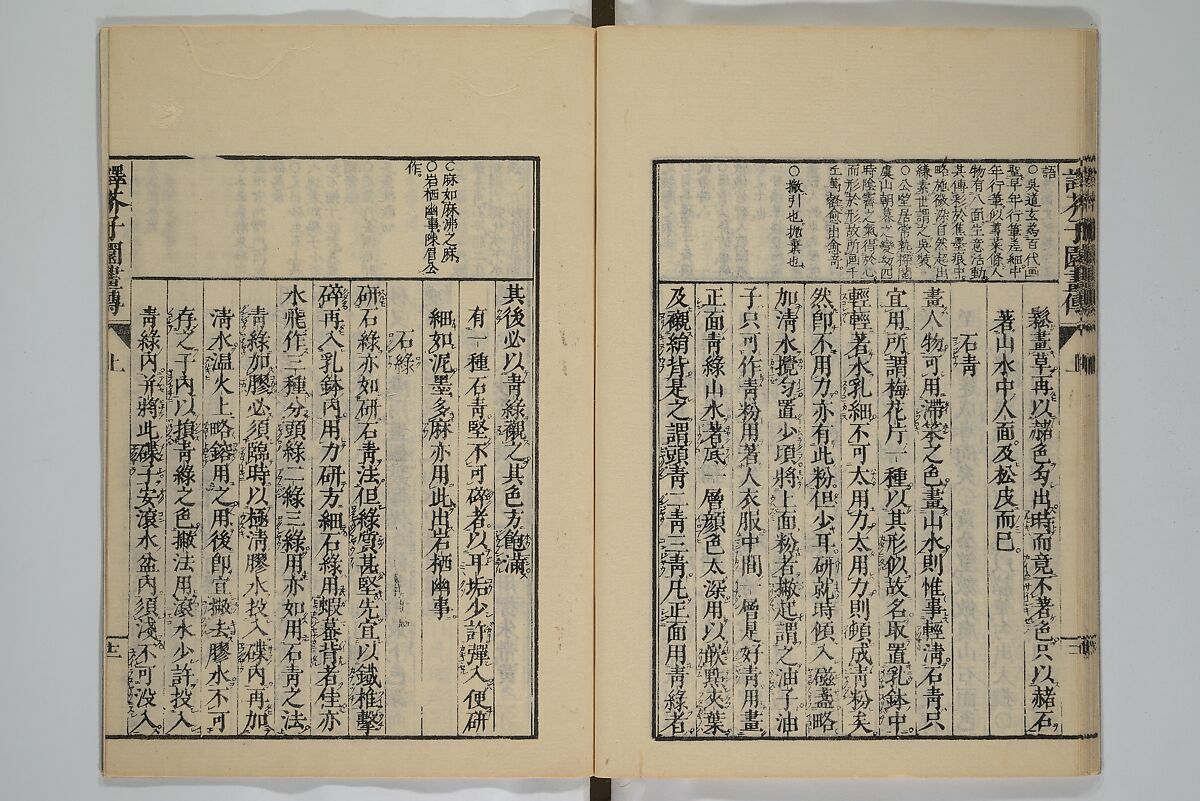 語
○吳道玄爲百代画
聖早年行筆差細中
年行筆似蓴菜條人
物有八面生意活動
其傅彩於焦墨痕中
略施微深自然超出
縑素世謂之吳裝
○公望居常熟
虞山朝暮之變幻四
時陰霽之氣得於心
而形於形故所画千
丘萬壑愈出愈奇
○撇引也拋棄也
鬆畫草再以赭色勾出時而竟不著色只以赭石
著山水中人面及松皮而已
石青
畫人物可用滯笨之色畫山水則惟事輕淸石青只
宜用所謂梅花片一種以其形似故名取置乳鉢中
輕輕著水乳細不可太用力太用力則頓成靑粉矣
然卽不用力亦有此粉但少耳研就時傾入磁盞略
加淸水攪勻置少頃將上面粉者撇起謂之油子油
子只可作靑粉用著人衣服中間一層是好靑用畫
正面靑綠山水著底一層顏色太深用以嵌點夾葉
及襯絹背是之謂頭靑二靑三靑凡正面用靑綠者
譯芥子園畫傳
上
○麻如麻沸之麻
○岩栖幽事陳眉公
作
其後必以靑綠襯之其色方飽滿
有一種石靑堅不可碎者以耳垢少許彈入便研
細如泥墨多麻亦用此出岩栖幽事
石綠
研石綠亦如研石靑法但綠質甚堅先宜以鐵椎擊
碎再入乳鉢内用力研方細石綠用蝦蟇背者佳亦
水飛作三種分頭綠二綠三綠用亦如用石靑之法
靑綠加膠必須臨時以極淸膠水投入碟内再加
淸水溫火上略鎔用之用後卽宜撇去膠水不可
存之于内以損靑綠之色撇法用滾水少許投入
靑綠内并將此碟子安滾水盆内須淺不可沒入
譯芥子園畫傳
上